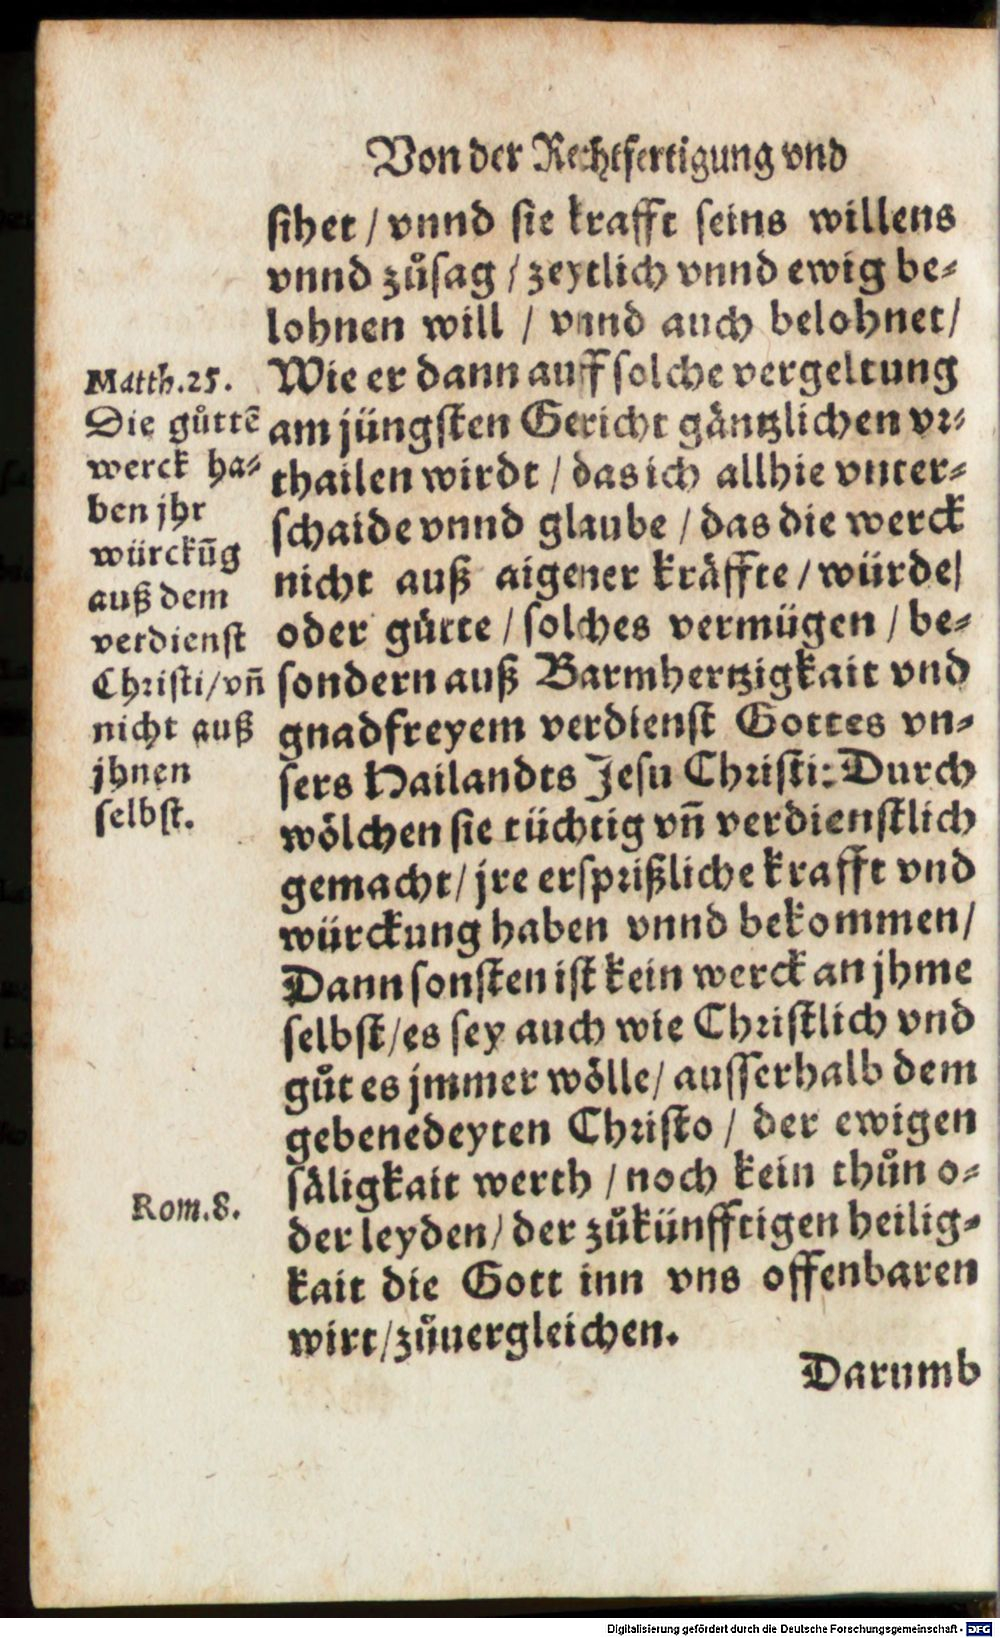 Von der Rechtfertigung vnd
sihet / vnnd sie krafft seins willens
vnnd zůsag / zeytlich vnnd ewig be⸗
lohnen will / vnnd auch belohnet /
Wie er dann auff solche vergeltung
am jüngsten Gericht gäntzlichen vr⸗
thailen wirdt / das ich allhie vnter⸗
schaide vnnd glaube / das die werck
nicht auß aigener kräffte / würde /
oder gütte / solches vermügen / be⸗
sondern auß Barmhertzigkait vnd
gnadfreyem verdienst Gottes vn⸗
sers Hailandts Jesu Christi: Durch
wölchen sie tüchtig vñ verdienstlich
gemacht / jre ersprißliche krafft vnd
würckung haben vnnd bekommen /
Dann sonsten ist kein werck an jhme
selbst / es sey auch wie Christlich vnd
gůt es jmmer wölle / ausserhalb dem
gebenedeyten Christo / der ewigen
säligkait werth / noch kein thůn o⸗
der leyden / der zůkünfftigen heilig⸗
kait die Gott inn vns offenbaren
wirt / zůuergleichen.
Darumb
Matth.25.
Die gůttẽ
werck ha⸗
ben jhr
würckũg
auß dem
verdienst
Christi / vñ
nicht auß
jhnen
selbst.
Rom.8.
Digitalisierung gefördert durch die Deutsche Forschungsgemeinschaft - DFG